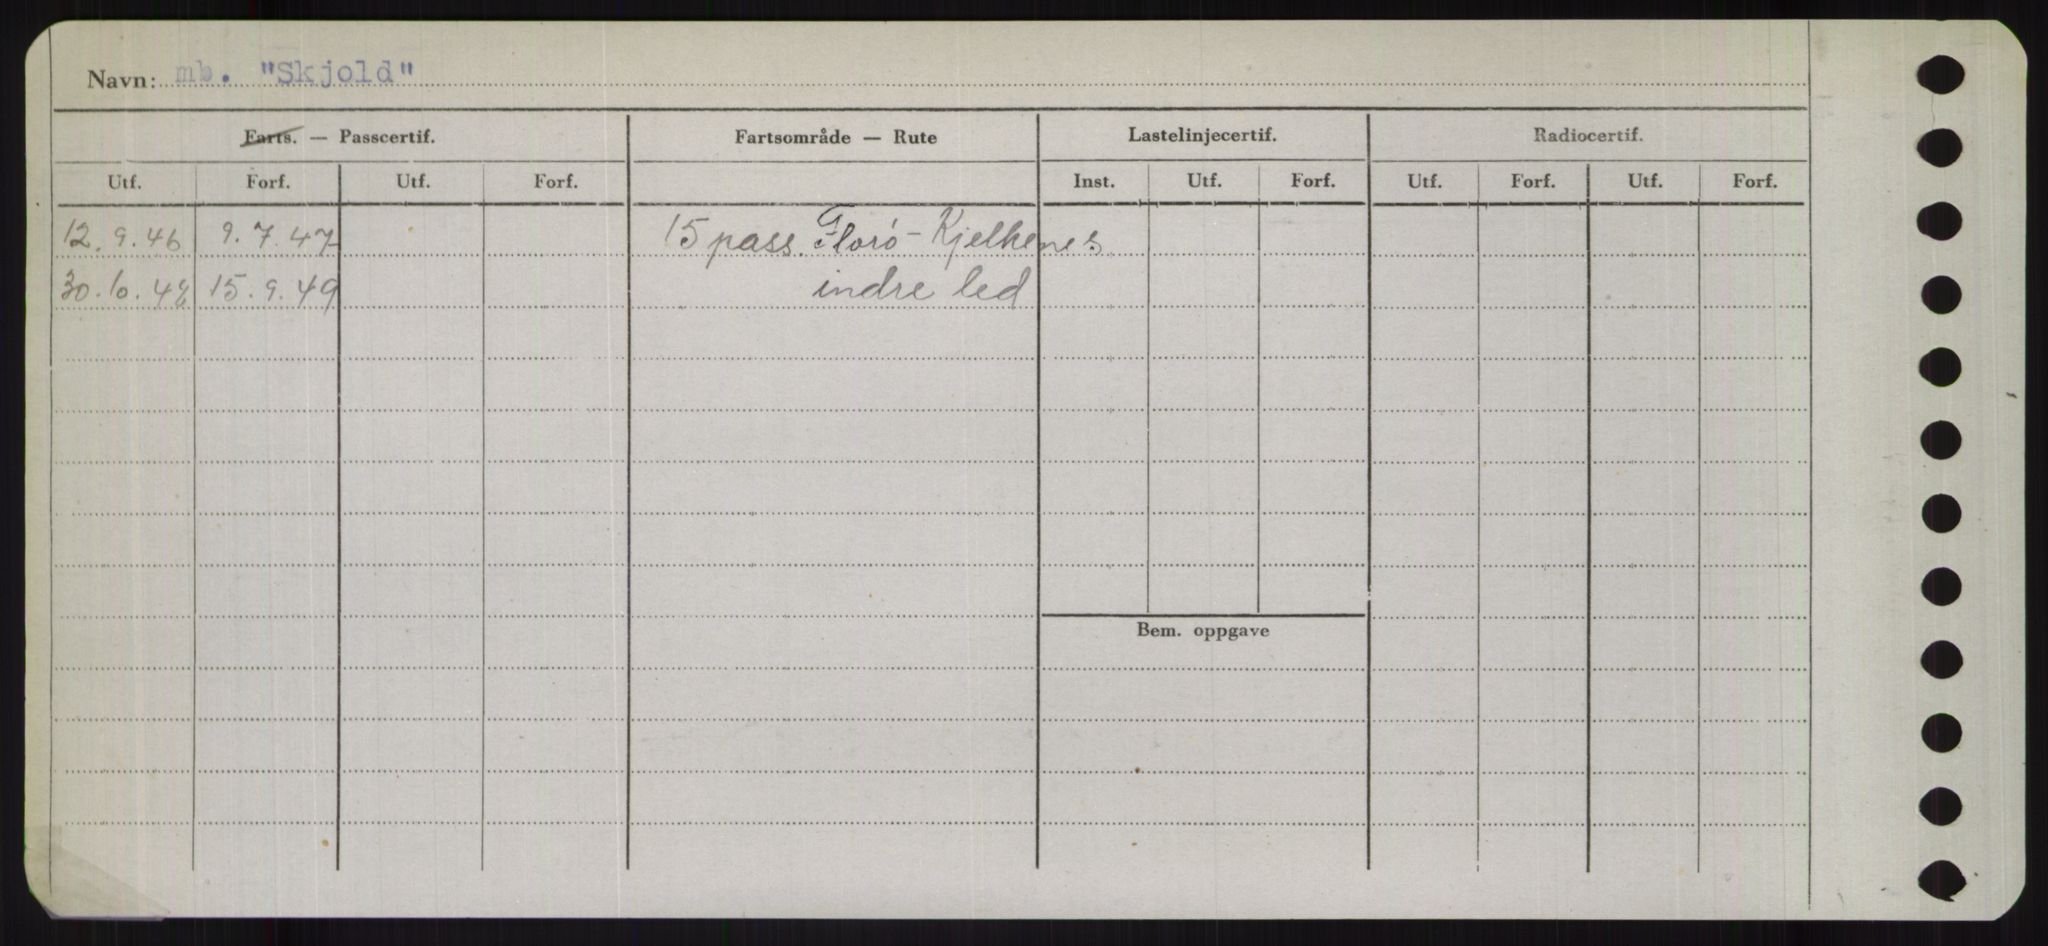 Navn: mb. "Skjold"
Farts. — Passcertif. Fartsområde — Rute Lastelinjecertif. Radiocertif.
Utf. Forf. Utf. Forf. Inst. Utf. Forf. Utf. Forf. Utf. Forf.
12.9.46 9.7.47 15 pass. Florö - Kjelkenes
30.6.48 15.9.49 indre led
Bem. oppgave